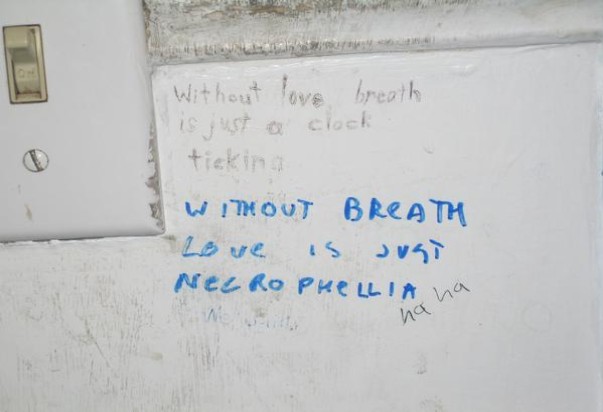 ON
Without love breath
is just a clock
ticking
WITHOUT BREATH
LOVE is JUST
NECROPHELLIA
ha ha